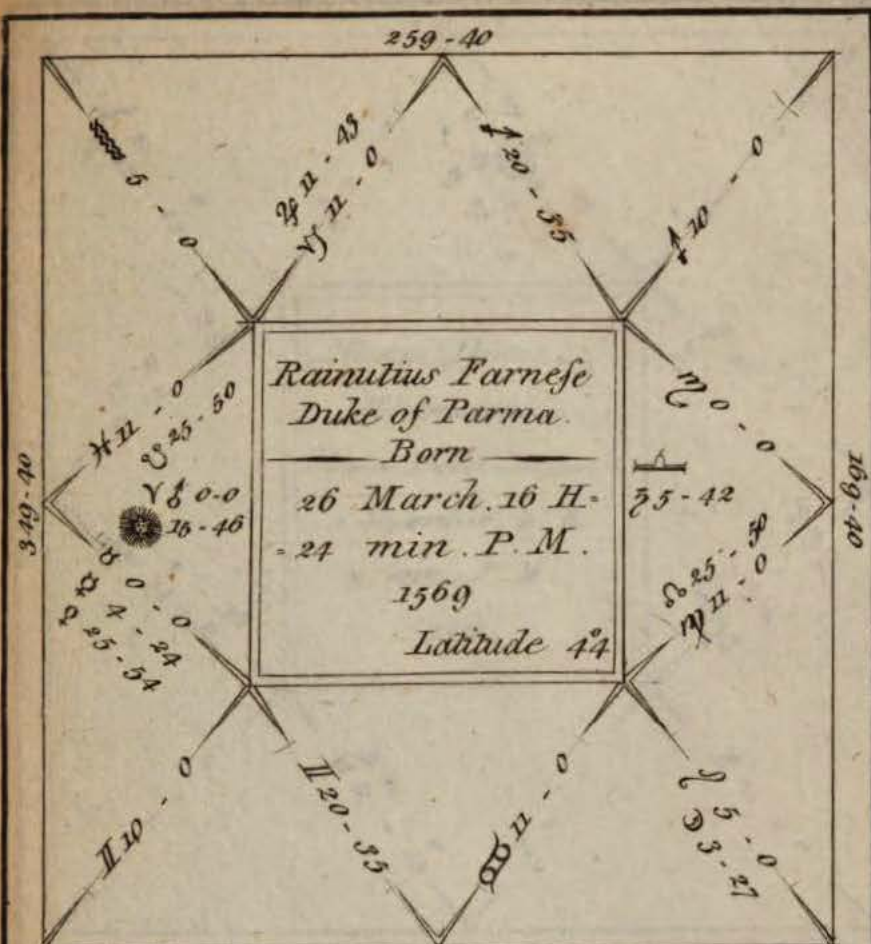 259 - 40
♒ 5 - 0
♃ 11 - 43
♑ 11 - 0
♐ 20 - 35
♐ 10 - 0
♓ 11 - 0
☋ 25 - 50
♏ 0 - 0
349 - 40
♈ ♂ 0 - 0
15 - 46
Rainutius Farneſe
Duke of Parma.
Born
26 March. 16 H=
= 24 min. P. M.
1569
Latitude 44°
♎
♄ 5 - 42
169 - 40
♉ 0 - 0
☿ 4 - 24
25 - 54
☊ 25 - 50
♍ 11 - 0
♊ 10 - 0
♊ 20 - 35
♋ 11 - 0
♌ 5 - 0
☽ 3 - 27